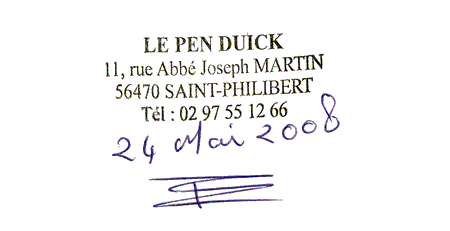 LE PEN DUICK
11, rue Abbé Joseph MARTIN
56470 SAINT-PHILIBERT
Tél : 02 97 55 12 66
24 Mai 2008